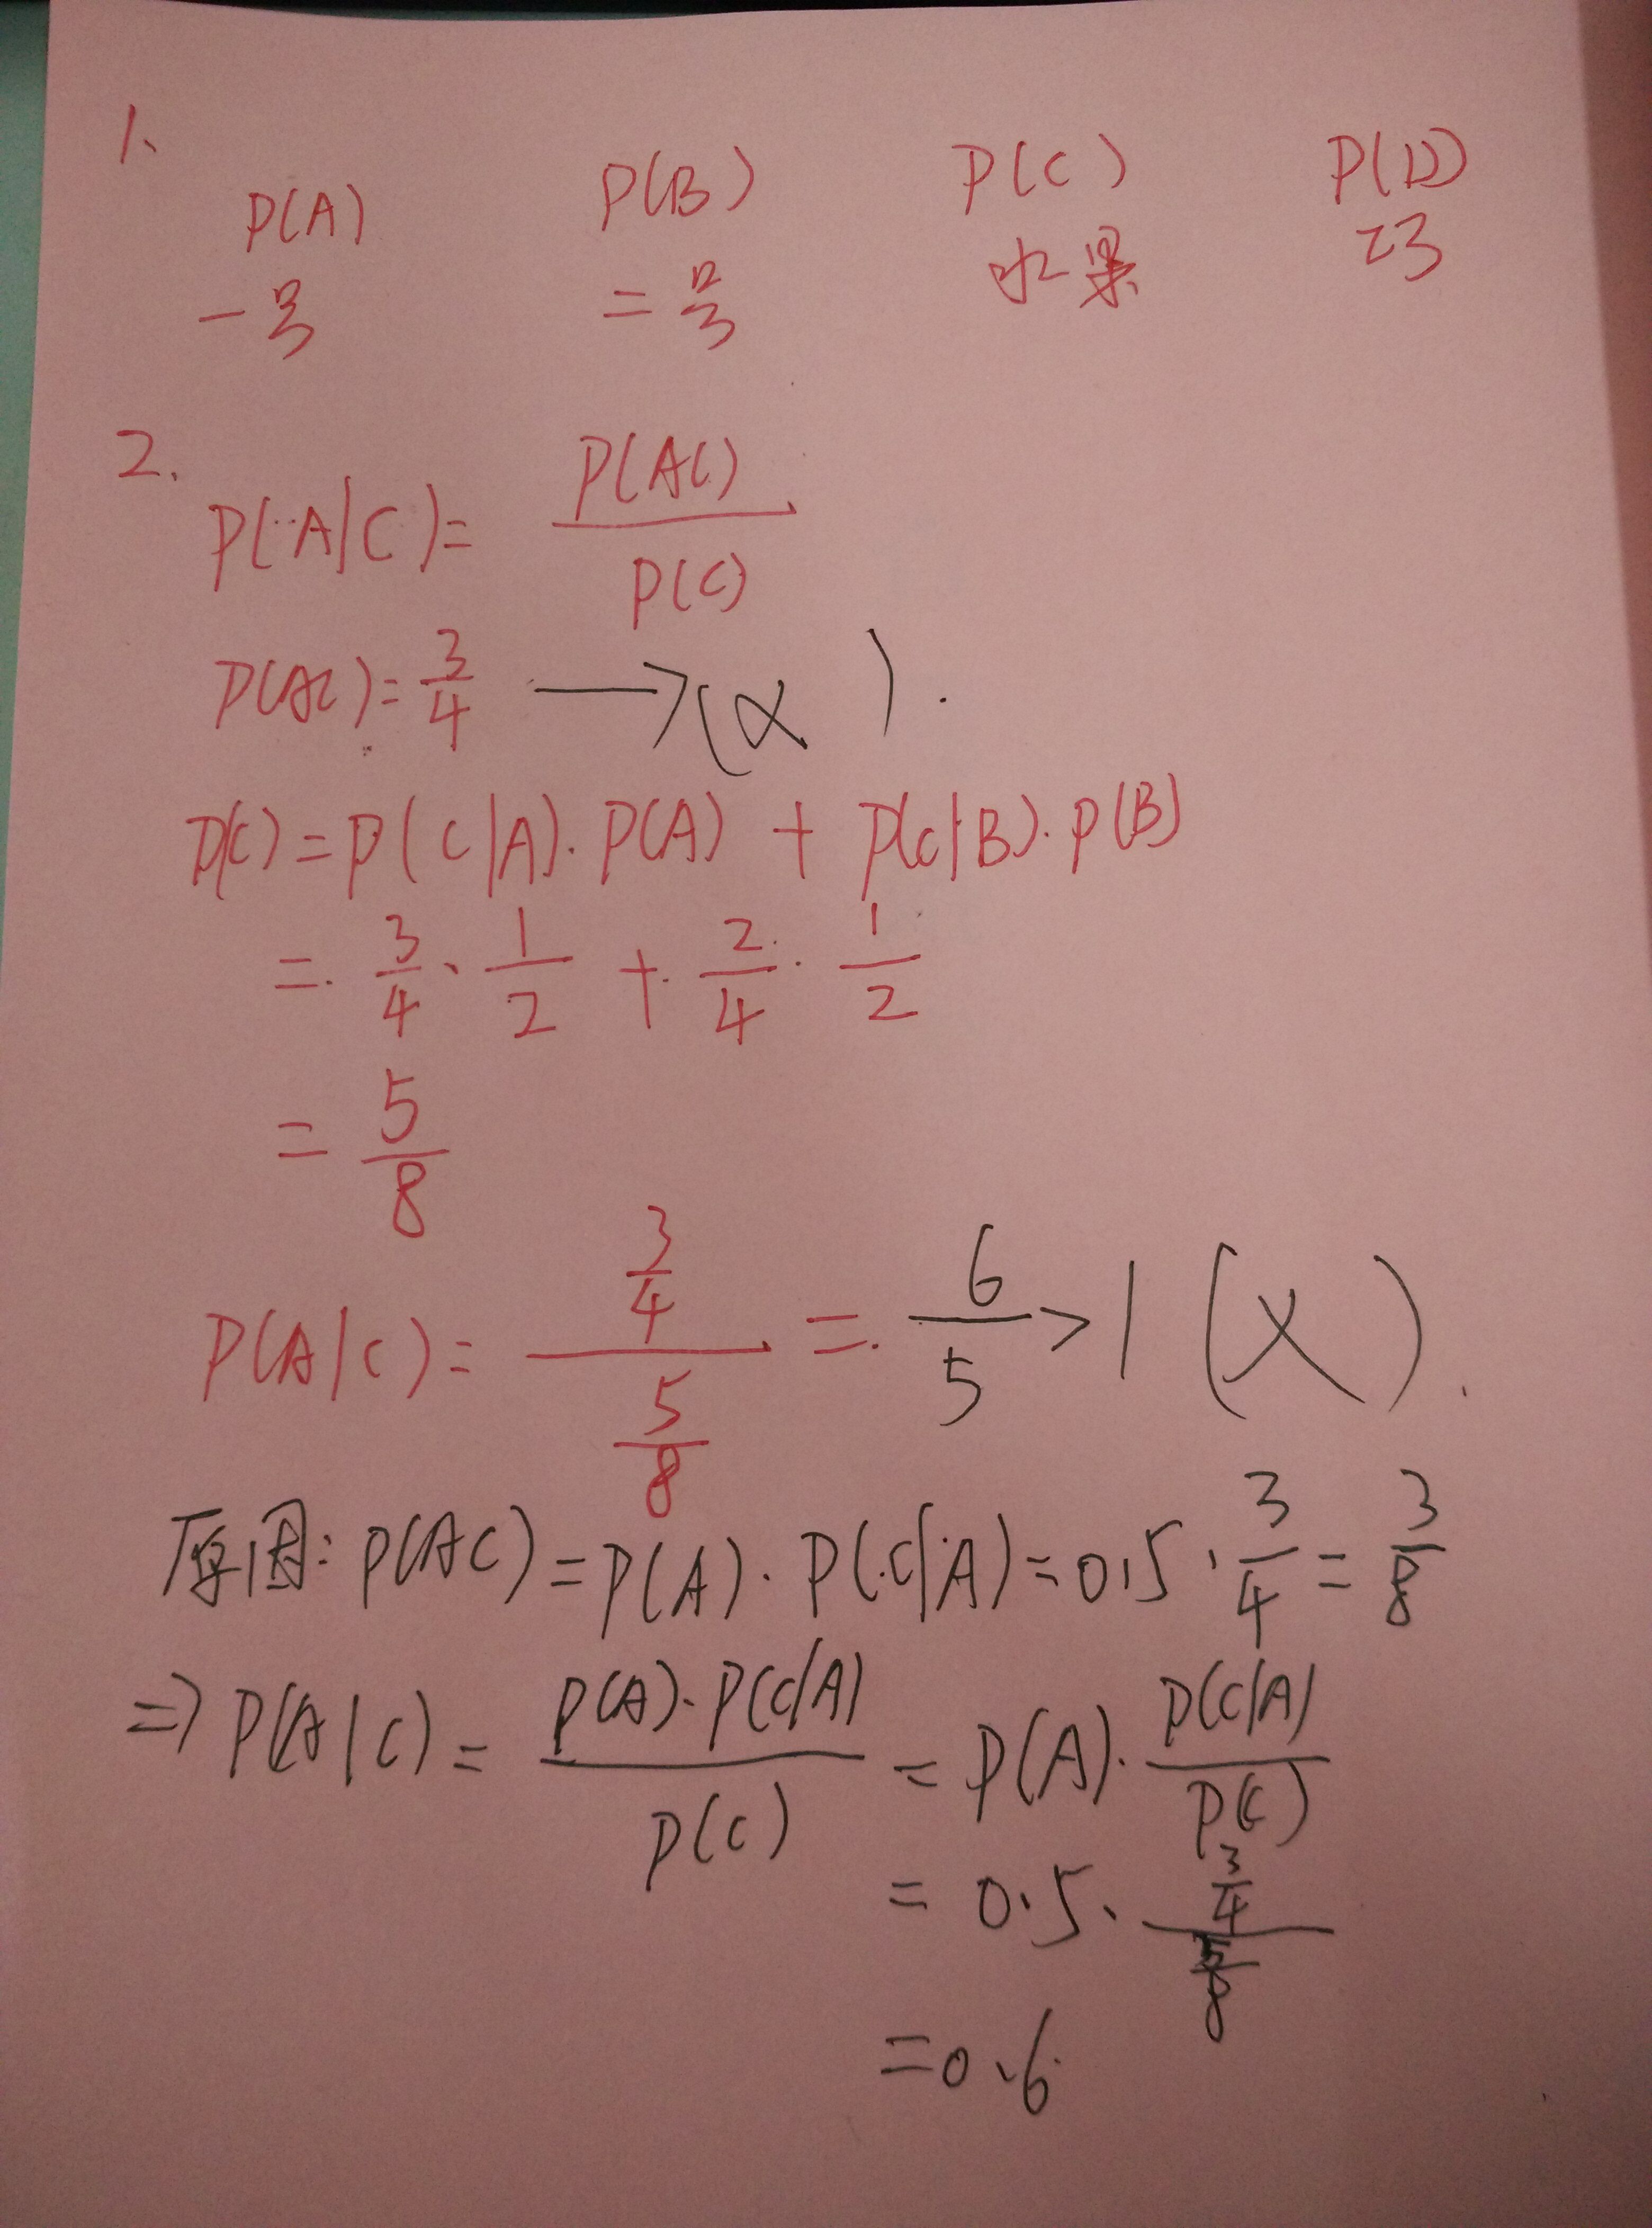 1.
P(A) P(B) P(C) P(D)
一号 二号 水果 巧
2.
P(A|C)= P(AC) / P(C)
P(AC)= 3/4 → (X).
P(C) = P(C|A)·P(A) + P(C|B)·P(B)
= 3/4 · 1/2 + 2/4 · 1/2
= 5/8
P(A|C)= (3/4) / (5/8) = 6/5 > 1 (X).
原因: P(AC) = P(A)·P(C|A) = 0.5 · 3/4 = 3/8
⇒ P(A|C) = P(A)·P(C|A) / P(C) = P(A)· P(C|A) / P(C)
= 0.5 · (3/4) / (5/8)
= 0.6